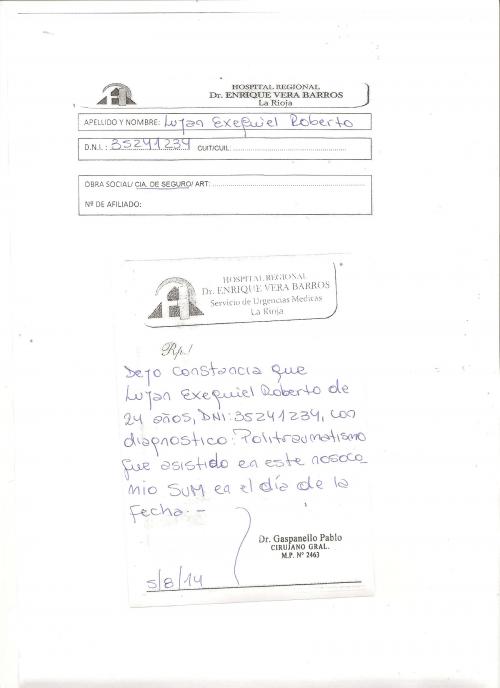 HOSPITAL REGIONAL
Dr. ENRIQUE VERA BARROS
La Rioja
APELLIDO Y NOMBRE: Lujan Exequiel Roberto
D.N.I. : 35241234 CUIT/CUIL:
OBRA SOCIAL/ CIA. DE SEGURO/ ART:
Nº DE AFILIADO:
HOSPITAL REGIONAL
Dr. ENRIQUE VERA BARROS
Servicio de Urgencias Medicas
La Rioja
Rp./
Dejo constancia que
Lujan Exequiel Roberto de
24 años, DNI: 35241234, con
diagnostico: Politraumatismo
fue asistido en este nosoco-
mio SUM en el día de la
fecha.-
Dr. Gaspanello Pablo
CIRUJANO GRAL.
M.P. Nº 2463
5/8/14